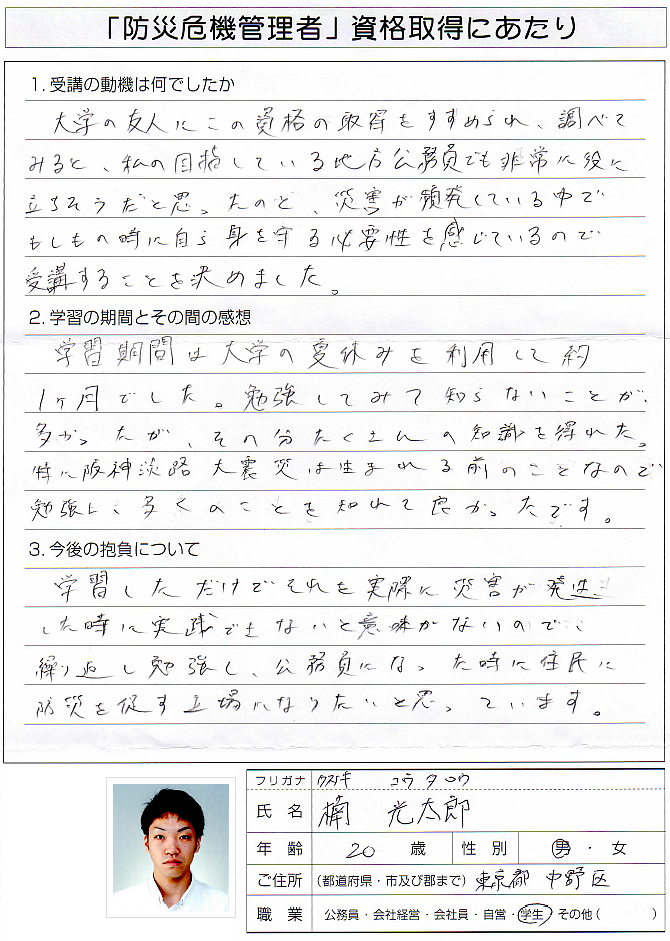 「防災危機管理者」資格取得にあたり
1. 受講の動機は何でしたか
大学の友人にこの資格の取得をすすめられ、調べて
みると、私の目指している地方公務員でも非常に役に
立ちそうだと思ったのと、災害が頻発している中で
もしもの時に自ら身を守る必要性を感じているので
受講することを決めました。
2. 学習の期間とその間の感想
学習期間は大学の夏休みを利用して約
1ヶ月でした。勉強してみて知らないことが、
多かったが、その分たくさんの知識を得れた。
特に阪神淡路大震災は生まれる前のことなので
勉強し、多くのことを知れて良かったです。
3. 今後の抱負について
学習しただけでそれを実際に災害が発生
した時に実践できないと意味がないので、
繰り返し勉強し、公務員になった時に住民に
防災を促す立場になりたいと思っています。
フリガナ コウタロウ
氏名 光太郎
年齢 20 歳 性別 男・女
ご住所 (都道府県・市及び郡まで) 東京都 中野区
職業 公務員・会社経営・会社員・自営・学生・その他( )